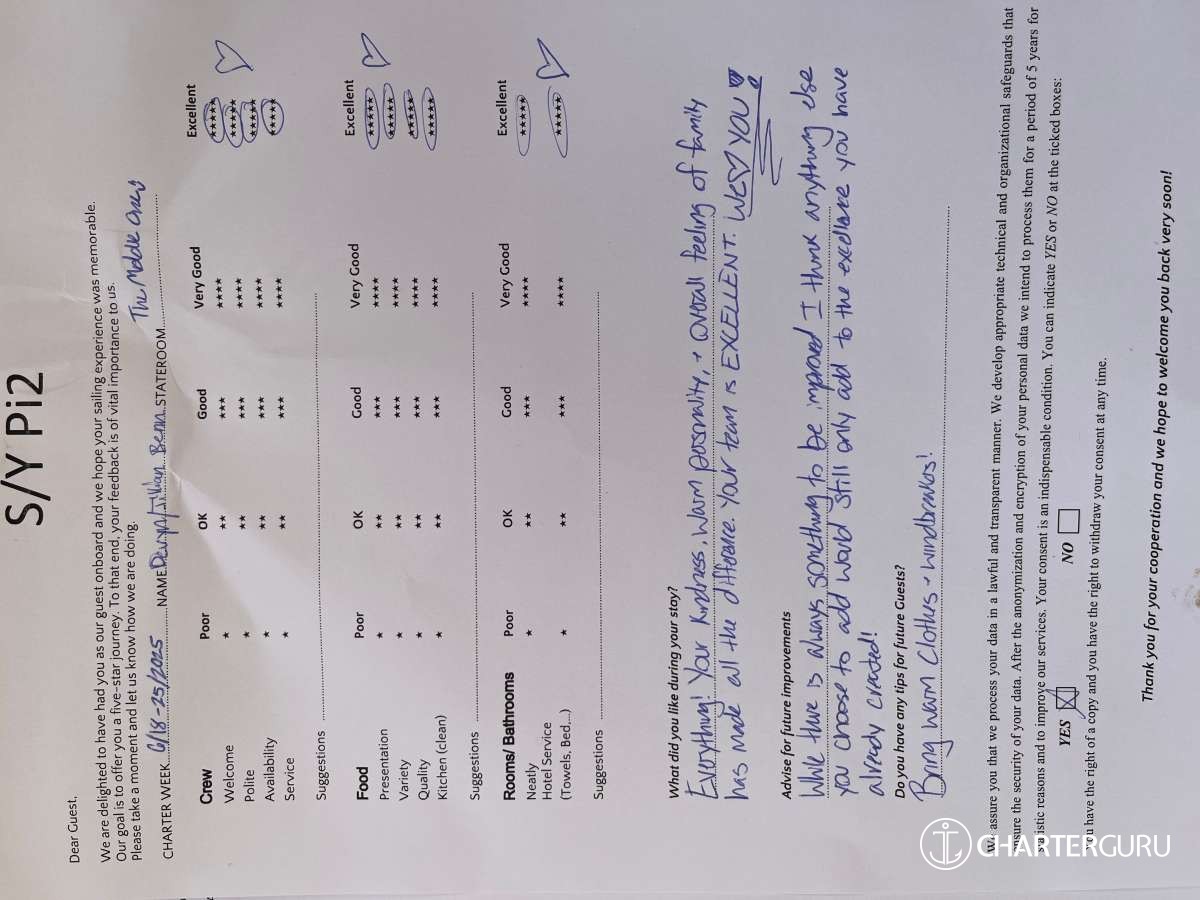 S/Y Pi2
Dear Guest,
We are delighted to have had you as our guest onboard and we hope your sailing experience was memorable.
Our goal is to offer you a five-star journey. To that end, your feedback is of vital importance to us.
Please take a moment and let us know how we are doing.
CHARTER WEEK 6/18-25/2025 NAME Devyn/Jillian STATEROOM The Middle Ones
Crew Poor OK Good Very Good Excellent
Welcome ★ ★★ ★★★ ★★★★ ★★★★★
Polite ★ ★★ ★★★ ★★★★ ★★★★★
Availability ★ ★★ ★★★ ★★★★ ★★★★★
Service ★ ★★ ★★★ ★★★★ ★★★★★
Suggestions
Food Poor OK Good Very Good Excellent
Presentation ★ ★★ ★★★ ★★★★ ★★★★★
Variety ★ ★★ ★★★ ★★★★ ★★★★★
Quality ★ ★★ ★★★ ★★★★ ★★★★★
Kitchen (clean) ★ ★★ ★★★ ★★★★ ★★★★★
Suggestions
Rooms/ Bathrooms Poor OK Good Very Good Excellent
Neatly ★ ★★ ★★★ ★★★★ ★★★★★
Hotel Service
(Towels, Bed,..) ★ ★★ ★★★ ★★★★ ★★★★★
Suggestions
What did you like during your stay?
Everything! Your kindness, warm personality, + overall feeling of family
has made all the difference. Your team is EXCELLENT. WE ♡ YOU!
Advise for future improvements
While there is always something to be improved I think anything else
you choose to add would still only add to the excellance you have
already created!
Do you have any tips for future Guests?
Bring warm clothes + windbrakes!
We assure you that we process your data in a lawful and transparent manner. We develop appropriate technical and organizational safeguards that
ensure the security of your data. After the anonymization and encryption of your personal data we intend to process them for a period of 5 years for
statistic reasons and to improve our services. Your consent is an indispensable condition. You can indicate YES or NO at the ticked boxes:
YES ☒ NO ☐
you have the right of a copy and you have the right to withdraw your consent at any time.
Thank you for your cooperation and we hope to welcome you back very soon!
CHARTERGURU